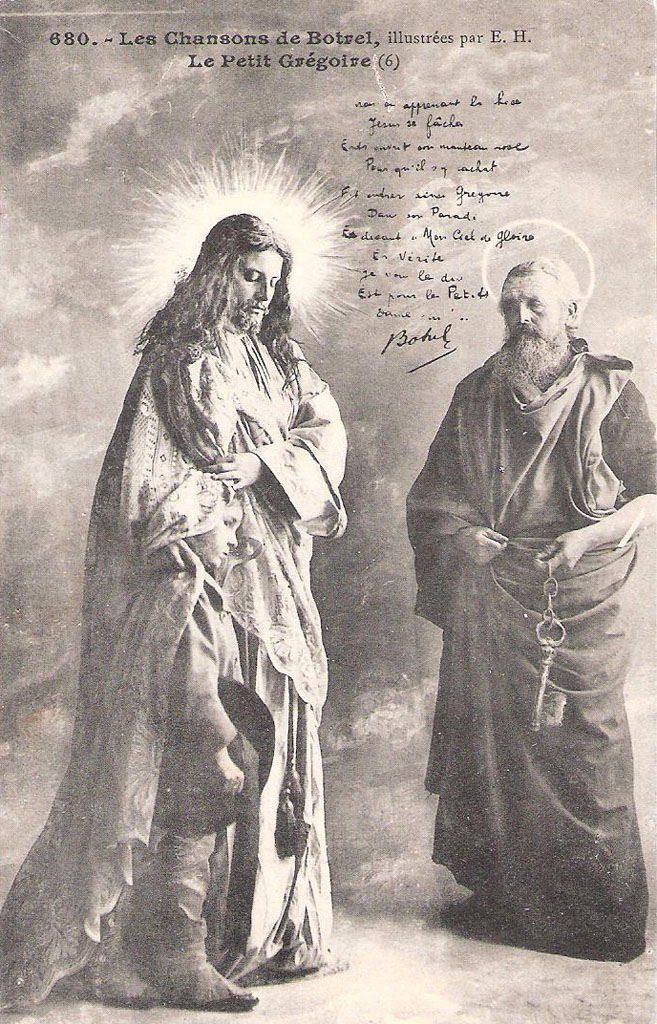 680. - Les Chansons de Botrel, illustrées par E. H.
Le Petit Grégoire (6)
en apprenant la
Jésus se fâcha
son manteau rose
Pour qu'il s'y cachât
entrer Grégoire
Dans son Parad.
disant « Mon Ciel de Gloire
En Vérité
Je vou le dis
Est pour les Petits
Botrel